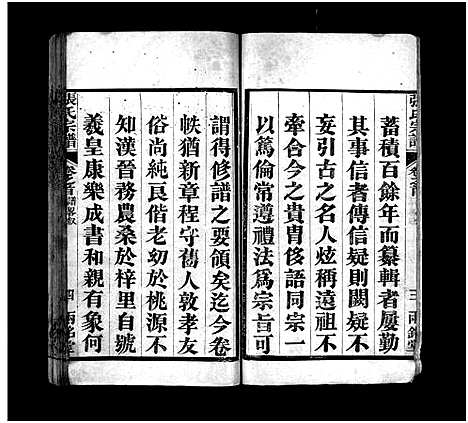 蓄積百餘年而纂輯者屢勤
其事信者傳信疑則闕疑不
妄引古之名人炫稱遠祖不
牽合今之貴冑侈語同宗一
以篤倫常遵禮法爲宗旨可
謂得修譜之要領矣迄今卷
帙猶新章程守舊人敦孝友
俗尚純良偕老幼於桃源不
知漢晉務農桑於梓里自號
羲皇康樂成書和親有象何
張氏宗譜
卷之首
四